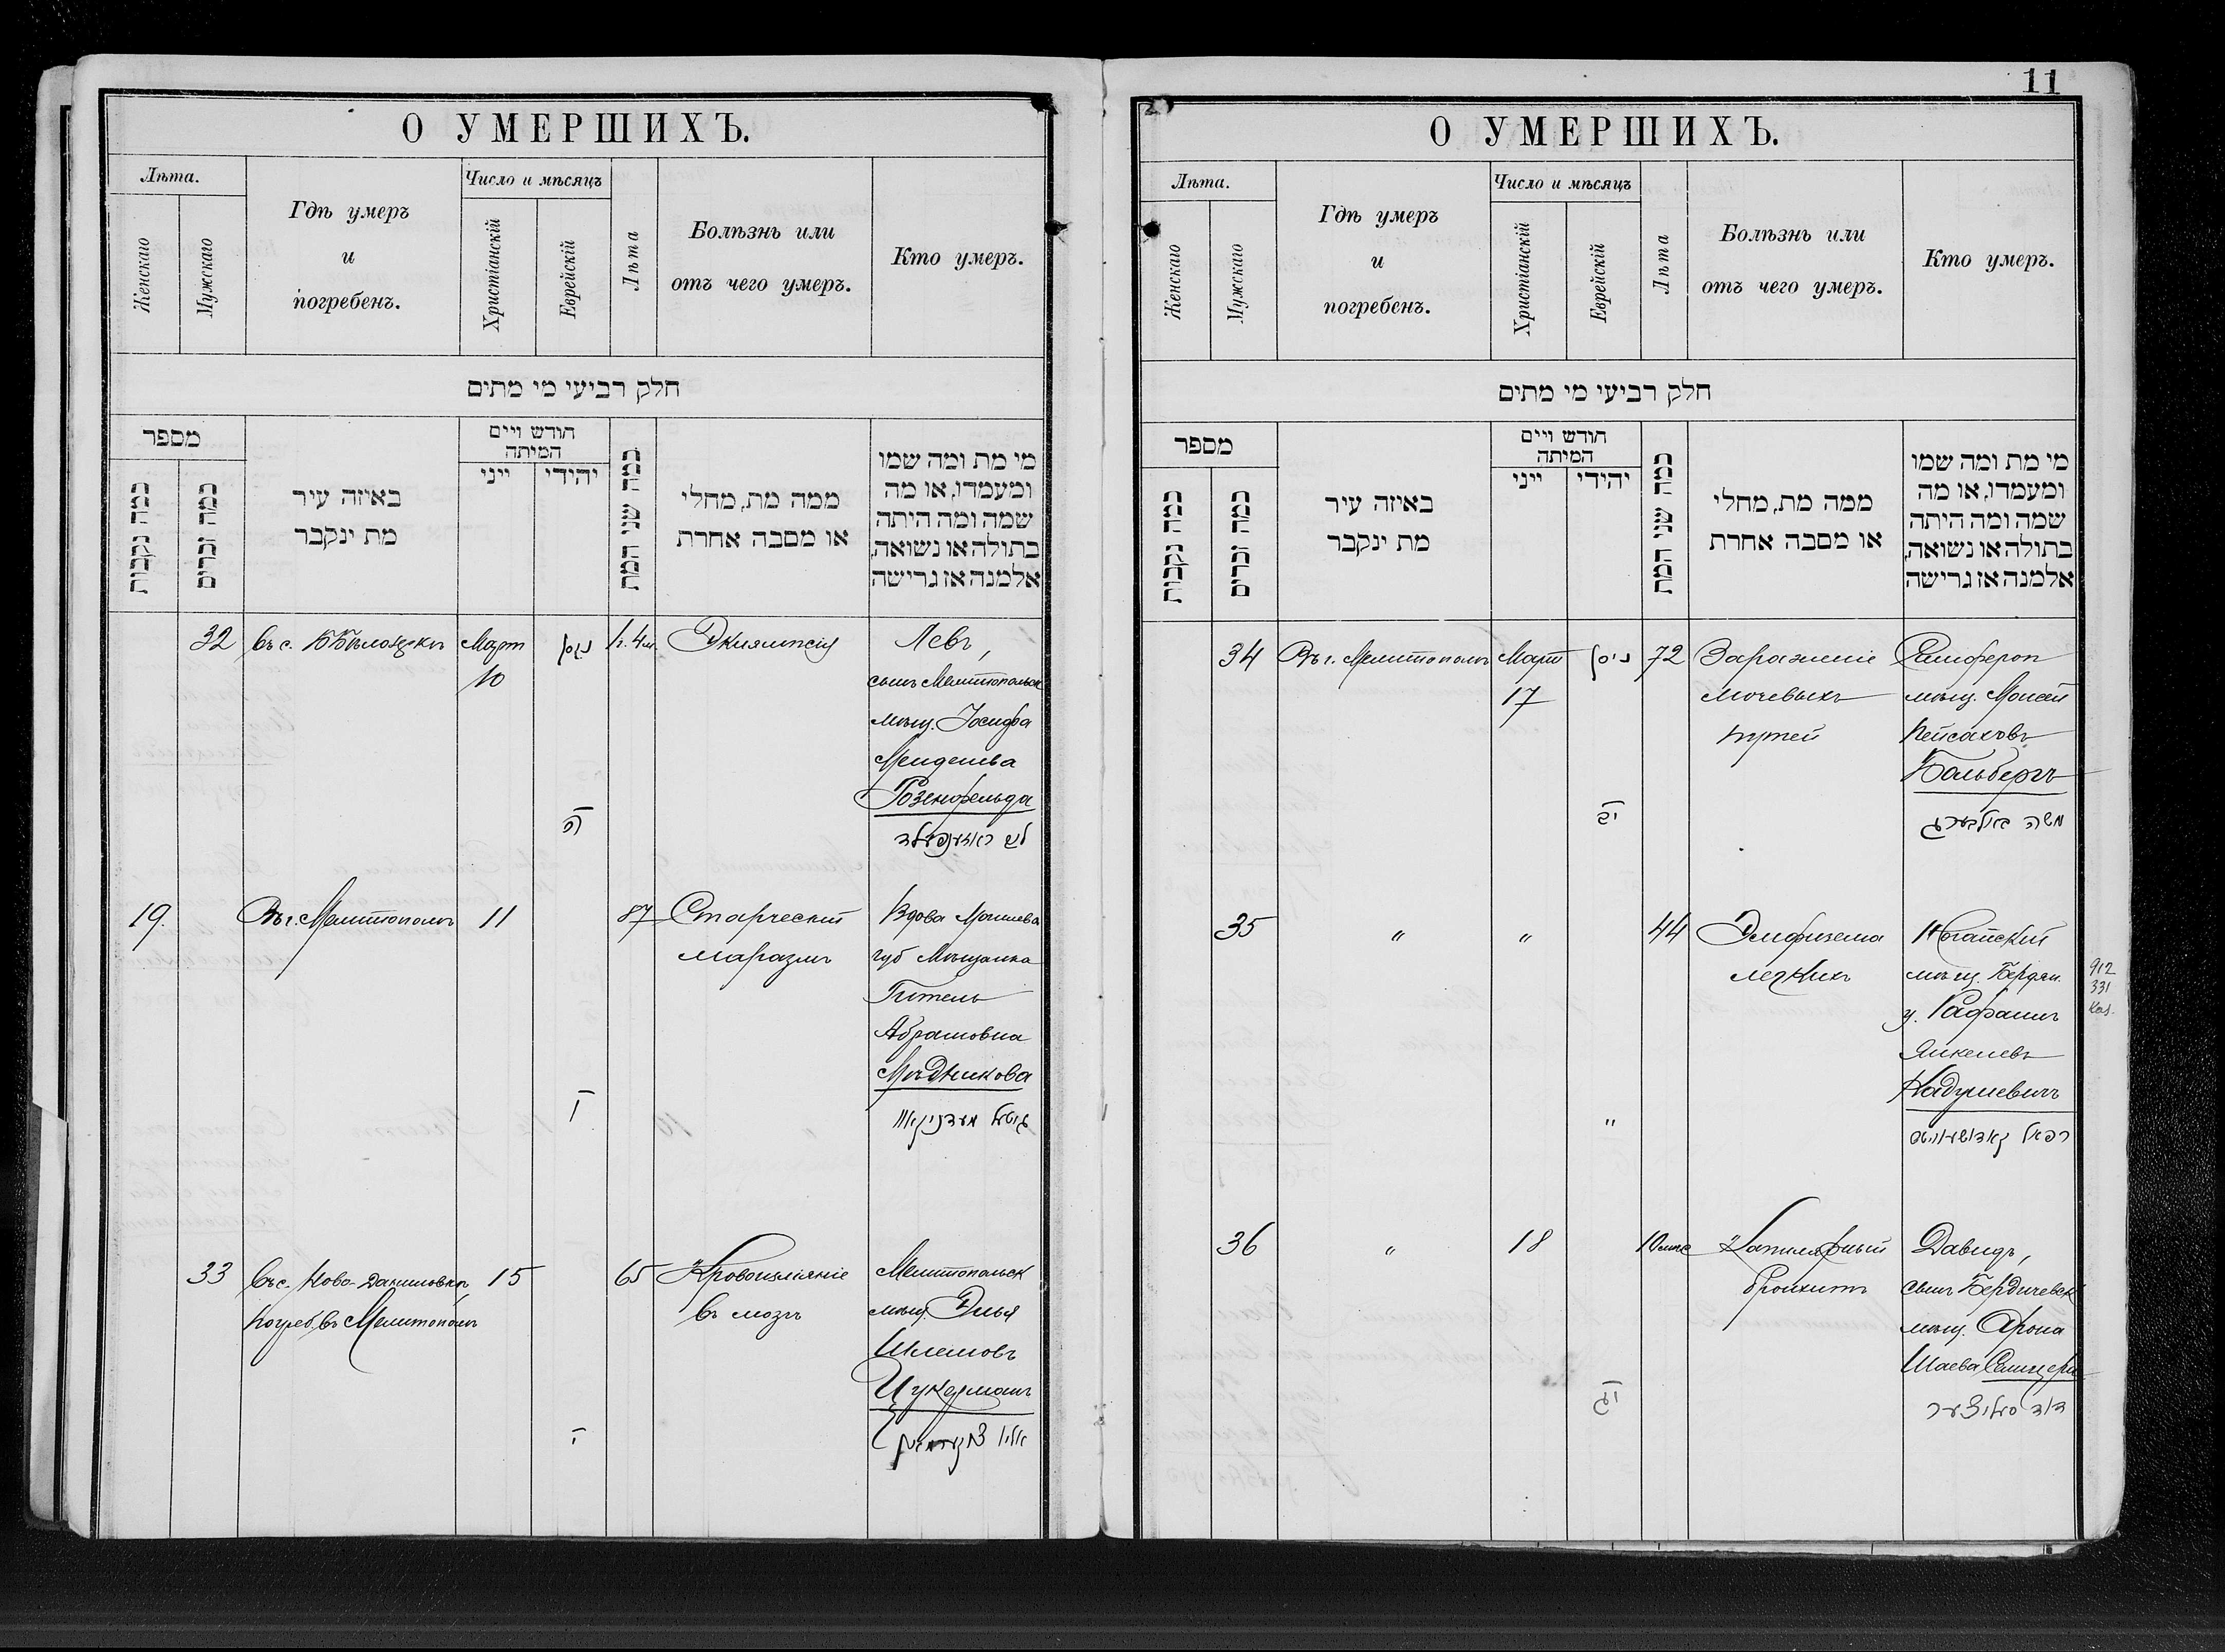 О УМЕРШИХЪ.
Лѣта.
Женскаго
Мужскаго
Гдѣ умеръ
и
погребенъ.
Число и мѣсяцъ
Христіанскій
Еврейскій
Лѣта
Болѣзнь или
отъ чего умеръ.
Кто умеръ.
חלק רביעי מי מתים
מספר
כמה נקבות
כמה זכרים
באיזה עיר
מת ינקבר
חודש ויים
המיתה
ייני
יהידי
כמה שני המת
ממה מת, מחלי
או מסבה אחרת
מי מת ומה שמו
ומעמדו, או מה
שמה ומה היתה
בתולה או נשואה,
אלמנה אז גרישה
32
Въ с.
Март
10
ניסן
ה
1г. 4м.
Эклямпсія
Левъ,
сынъ Мелитопольск
мѣщ. Іосифа
Менделева
Розенфельда
לעב ראזענפעלד
19.
Въ г. Мелитополѣ
11
ו
87
Старческій
маразмъ
Вдова Могилева
губ Мѣщанка
Гитель
Абрамовна
Мѣдникова
גיטל מעדניקאוו
33
Въ с. Ново-Даниловкѣ,
погреб. въ Мелитополѣ
15
י
65
Кровоизліяніе
въ мозгъ
Мелитопольск
мѣщ. Элья
Шлемовъ
Цукерманъ
אליו צוקערמאן
11
О УМЕРШИХЪ.
Лѣта.
Женскаго
Мужскаго
Гдѣ умеръ
и
погребенъ.
Число и мѣсяцъ
Христіанскій
Еврейскій
Лѣта
Болѣзнь или
отъ чего умеръ.
Кто умеръ.
חלק רביעי מי מתים
מספר
כמה נקבות
כמה זכרים
באיזה עיר
מת ינקבר
חודש ויים
המיתה
ייני
יהידי
כמה שני המת
ממה מת, מחלי
או מסבה אחרת
מי מת ומה שמו
ומעמדו, או מה
שמה ומה היתה
בתולה או נשואה,
אלמנה אז גרישה
34
Въ г. Мелитополѣ
Март
17
ניסן
יב
72
Зараженіе
мочевыхъ
путей
Симфероп
мѣщ. Моисей
Пейсаховъ
Больбергъ
משה באלבערג
35
"
"
"
44
Эмфизема
легкихъ
Ногайскій
мѣщ. Бердян.
у. Рафаилъ
Янкелевъ
Кадушевичъ
רפאל קאדושעוויטש
912
331
36
"
18
יג
10 мѣс
Капилярный
бронхитъ
Давидъ,
сынъ Бердичевск
мѣщ. Арона
Шаева Селицера
דוד סעליצער